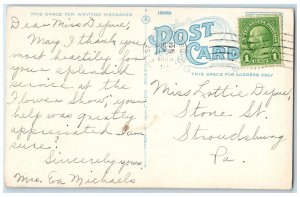 THIS SPACE FOR WRITING MESSAGES
130988
POST
CARD
THIS SPACE FOR ADDRESS ONLY
1
Dear Miss Depue,
May I thank you
most heartily for
your splendid
service at the
Flower Show, your
help was greatly
appreciated I am
sure.
Sincerely yours
Mrs. Eva Michaels
Miss Lottie Depue,
Stone St.
Stroudsburg
Pa.